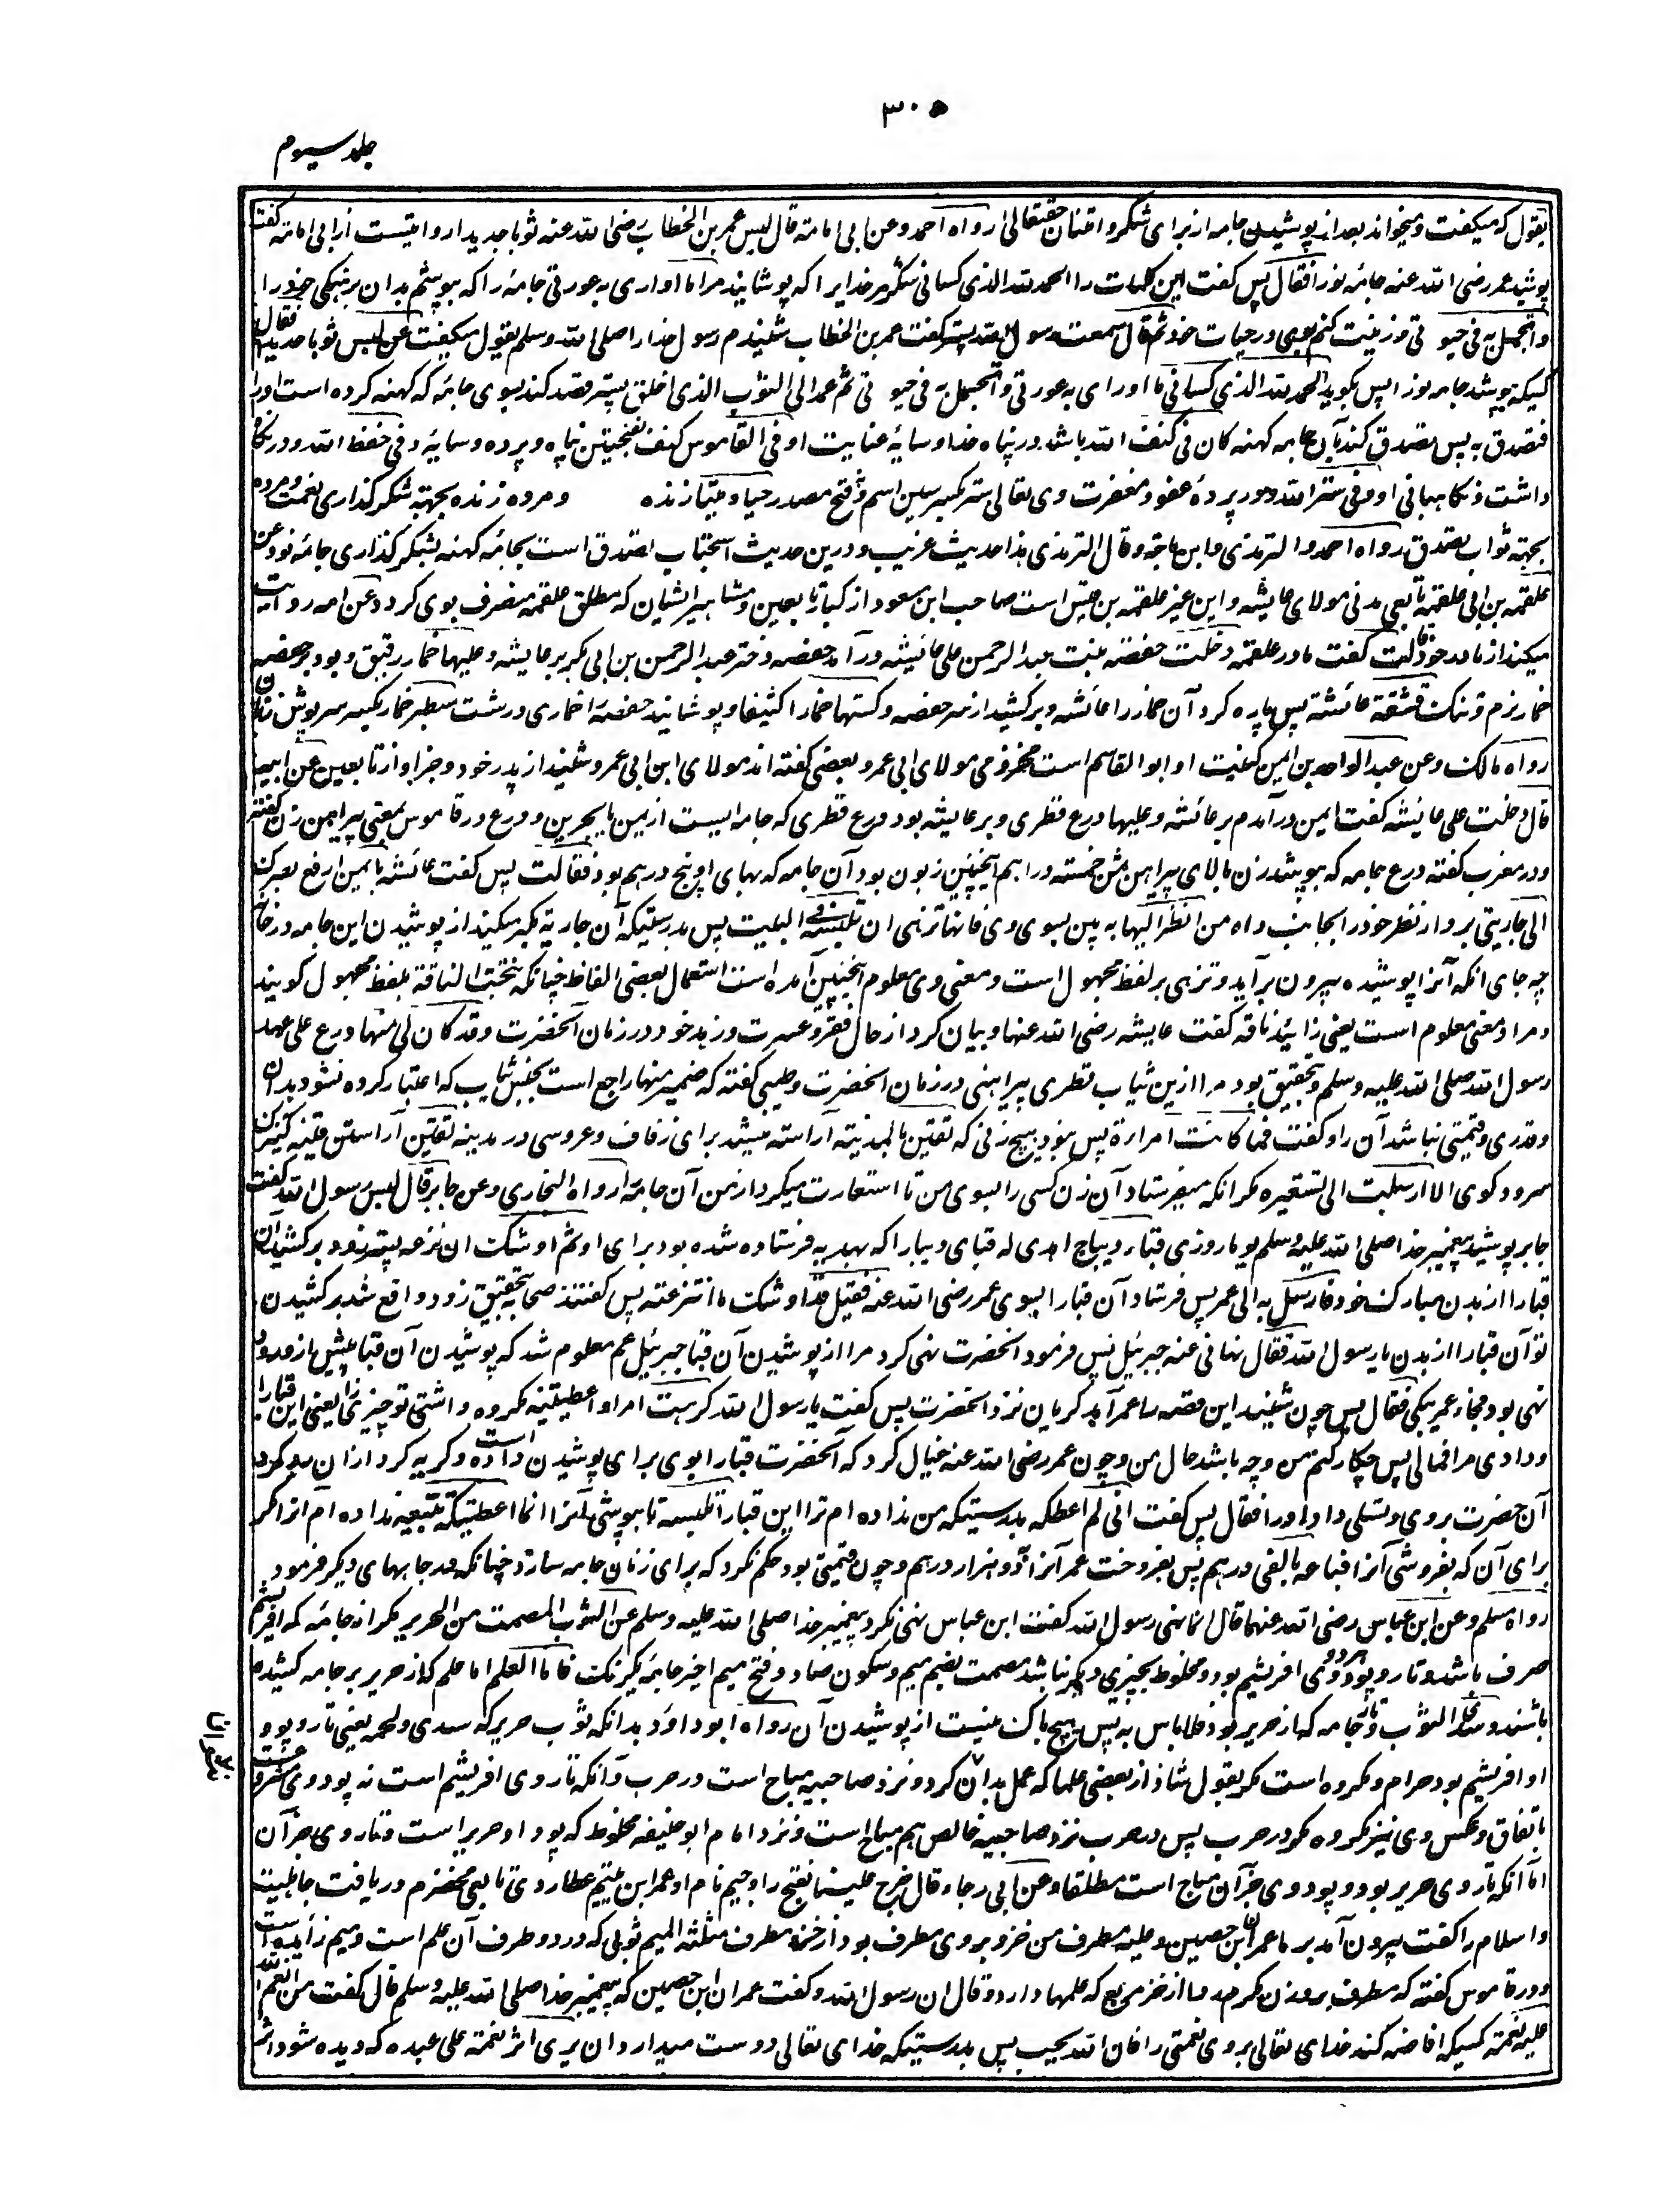 ۳۰۵
جلد سیوم
یقول که میگفت و میخواند بعد از پوشیدن جامه از برای شکر و امتنان حقتعالی را رواه احمد وعن ابی امامة قال لبس عمر بن الخطاب رضی الله عنه ثوبا جدیدا روایتست از ابی امامه گفت
پوشید عمر رضی الله عنه جامهٔ نو را فقال پس گفت این کلمات را الحمد لله الذی کسانی شکر مر خدایرا که پوشانید مرا ما اواری به عورتی جامهٔ را که بپوشم بدان برهنگی خود را
واتجمل به فی حیوتی وزینت کنم بوی در حیات خود ثم قال سمعت رسول الله پستر گفت عمر بن الخطاب شنیدم رسول خدا را صلی الله وسلم یقول میگفت من لبس ثوبا جدیدا فقال
کسیکه بپوشد جامه نو را پس بگوید الحمد لله الذی کسانی ما اواری به عورتی واتجمل به فی حیوتی ثم عمد الی الثوب الذی اخلق پستر قصد کند بسوی جامهٔ که کهنه کرده است او را
فتصدق به پس تصدق کند بآن جامه کهنه کان فی کنف الله باشد در پناه خدا و سایهٔ عنایت او فی القاموس کنف بفتحتین پناه و پرده و سایهٔ وفی حفظ الله و در نگاه
داشت و نگاهبانی او وفی ستر الله و در پردهٔ عفو و مغفرت وی تعالی ستر بکسر سین اسم و فتح مصدر حیا ومیتا زنده ومرده زنده بجهة شکرگذاری نعمت و مرده
بجهة ثواب تصدق رواه احمد والترمذی وابن ماجة وقال الترمذی هذا حدیث غریب و درین حدیث استحباب تصدق است بجامهٔ کهنه بشکرگذاری جامهٔ نو وعن
علقمة بن ابی علقمة تابعی مدنی مولای عایشه و این غیر علقمه بن قیس است صاحب ابن مسعود از کبار تابعین و مشاهیر ایشان که مطلق علقمه منصرف بوی گردد عن امه روایت
میکند از مادر خود قالت گفت مادر علقمه دخلت حفصة بنت عبد الرحمن علی عائشة در آمد حفصه دختر عبد الرحمن بن ابی بکر بر عایشه وعلیها خمار رقیق و بود بر حفصه
خمار نرم و تنک فشقته عائشة پس پاره کرد آن خمار را عائشه و برکشید از سر حفصه وکستها خمارا کثیفا و پوشانید حفصه را خماری درشت سطبر خمار بکسر سرپوش زنان
رواه مالک وعن عبد الواحد بن ایمن کنیت او ابو القاسم است مخزومی مولای ابی عمرو بعضی گفته اند مولای ابن ابی عمرو شنید از پدر خود و جز او از تابعین عن ابیه
قال دخلت علی عائشة گفت ایمن در آمدم بر عائشه وعلیها درع قطری و بر عایشه بود درع قطری که جامه ایست از یمن یا بحرین و درع در قاموس بمعنی پیراهن زن گفته
و در مغرب گفته درع جامه که بپوشد زن بالای پیراهن ثمن خمسة دراهم اینچنین زبون بود آن جامه که بهای او پنج درهم بود فقالت پس گفت عائشه بایمن ارفع بصرک
الی جاریتی بردار نظر خود را بجانب داه من انظر الیها به بین بسوی وی فانها تزهی ان تلبسه فی البیت پس بدرستیکه آن جاریه تکبر میکند از پوشیدن این جامه در خانه
چه جای آنکه آنرا پوشیده بیرون برآید و تزهی بر لفظ مجهول است و معنی وی معلوم اینچنین آمده است استعمال بعضی الفاظ چنانکه نتجت الناقة بلفظ مجهول گویند
و مراد معنی معلوم است یعنی زائید ناقه گفت عایشه رضی الله عنها و بیان کرد از حال فقر و عسرت و زهد خود در زمان آنحضرت وقد کان لی منها درع علی عهد
رسول الله صلی الله علیه وسلم و بتحقیق بود مرا ازین ثیاب قطری پیراهنی در زمان آنحضرت وطیبی گفته که ضمیر منها راجع است بجنس ثیاب که اعتبار کرده نشود بدان
و قدری و قیمتی نباشد آن را و گفت فما کانت امرأة پس نبود هیچ زنی که تقین بالمدینة آراسته میشد برای زفاف و عروسی در مدینه تقیین آراستن قینه کنیزک
سرود گوی الا ارسلت الی تستعیره مگر آنکه میفرستاد آن زن کسی را بسوی من تا استعارت میکرد از من آن جامه را رواه البخاری وعن جابر قال لبس رسول الله گفت
جابر پوشید پیغمبر خدا صلی الله علیه وسلم یوما روزی قباء دیباج اهدی له قبای دیبا را که بهدیه فرستاده شده بود برای او ثم اوشک ان نزعه پستر زود برکشید آن
قبا را از بدن مبارک خود فارسل به الی عمر پس فرستاد آن قبا را بسوی عمر رضی الله عنه فقیل قد اوشک ما انتزعته پس گفتند صحابه بتحقیق زود واقع شد برکشیدن
تو آن قبا را از بدن یا رسول الله فقال نهانی عنه جبرئیل پس فرمود آنحضرت نهی کرد مرا از پوشیدن آن قبا جبرئیل عم معلوم شد که پوشیدن آن قبا پیش از ورود
نهی بود فجاء عمر یبکی فقال پس چون شنید این قصه را عمر آمد گریان نزد آنحضرت پس گفت یا رسول الله کرهت امرا واعطیتنیه مکروه داشتی تو چیزی را یعنی این قبا را
و دادی مرا فما لی پس چکار کنم من و چه باشد حال من و چون عمر رضی الله عنه خیال کرد که آنحضرت قبا را بوی برای پوشیدن داده است و گریه کرد ازان
آن حضرت بروی و تسلی داد او را فقال پس گفت انی لم اعطکه بدرستیکه من نداده ام ترا این قبا را تلبسه تا بپوشی آنرا انما اعطیتکه تبیعه نداده ام آنرا مگر
برای آن که بفروشی آنرا فباعه بالفی درهم پس بفروخت عمر آنرا بدو هزار درهم و چون قیمتی بود حکم نکرد که برای زنان جامه سازد چنانکه در جامهای دیگر فرمود
رواه مسلم وعن ابن عباس رضی الله عنهما قال انما نهی رسول الله گفت ابن عباس نهی نکرد پیغمبر خدا صلی الله علیه وسلم عن الثوب المصمت من الحریر مگر از جامهٔ که ابریشم
صرف باشد و تار و پود هر دو وی افریشم بود و مخلوط بچیزی دیگر نباشد مصمت بضم میم و سکون صاد و فتح میم اخیر جامهٔ یکرنگ فاما العلم اما علم که از حریر بر جامه کشیده
باشند وسدی الثوب و تار جامه که از حریر بود فلا باس به پس هیچ باک نیست از پوشیدن آن رواه ابو داود بدانکه ثوب حریر که سدی ولحمه یعنی تار و پود
او افریشم بود حرام و مکروه است مگر بقول شاذ از بعضی علما که عمل بدان نکردند و نزد صاحبیه مباح است در حرب و آنکه تار وی افریشم است نه پود وی مشروعست
باتفاق و عکس وی نیز مکروه مگر در حرب پس در حرب نزد صاحبیه خالص هم مباح است و نزد امام ابو حنیفه مخلوط که پود او حریر است و تار وی جز آن
اما آنکه تار وی حریر بود و پود وی جز آن مباح است مطلقا وعن ابی رجاء قال خرج علینا بفتح را و جیم نام او عمران بن تمیم عطاردی تابعی مخضرم دریافت جاهلیت
و اسلام را گفت بیرون آمد بر ما عمران بن حصین وعلیه مطرف من خز و بر وی مطرف بود از خز و مطرف مثلثة المیم ثوبی که در دو طرف آن علم است و میم زائده است
و در قاموس گفته که مطرف بر وزن مکرم ردا از خز مربع که علمها دارد وقال ان رسول الله و گفت عمران ابن حصین که پیغمبر خدا صلی الله علیه وسلم قال گفت من انعم الله
علیه نعمة کسیکه افاضه کند خدای تعالی بروی نعمتی را فان الله یحب پس بدرستیکه خدای تعالی دوست میدارد ان یری اثر نعمته علی عبده که دیده شود اثر